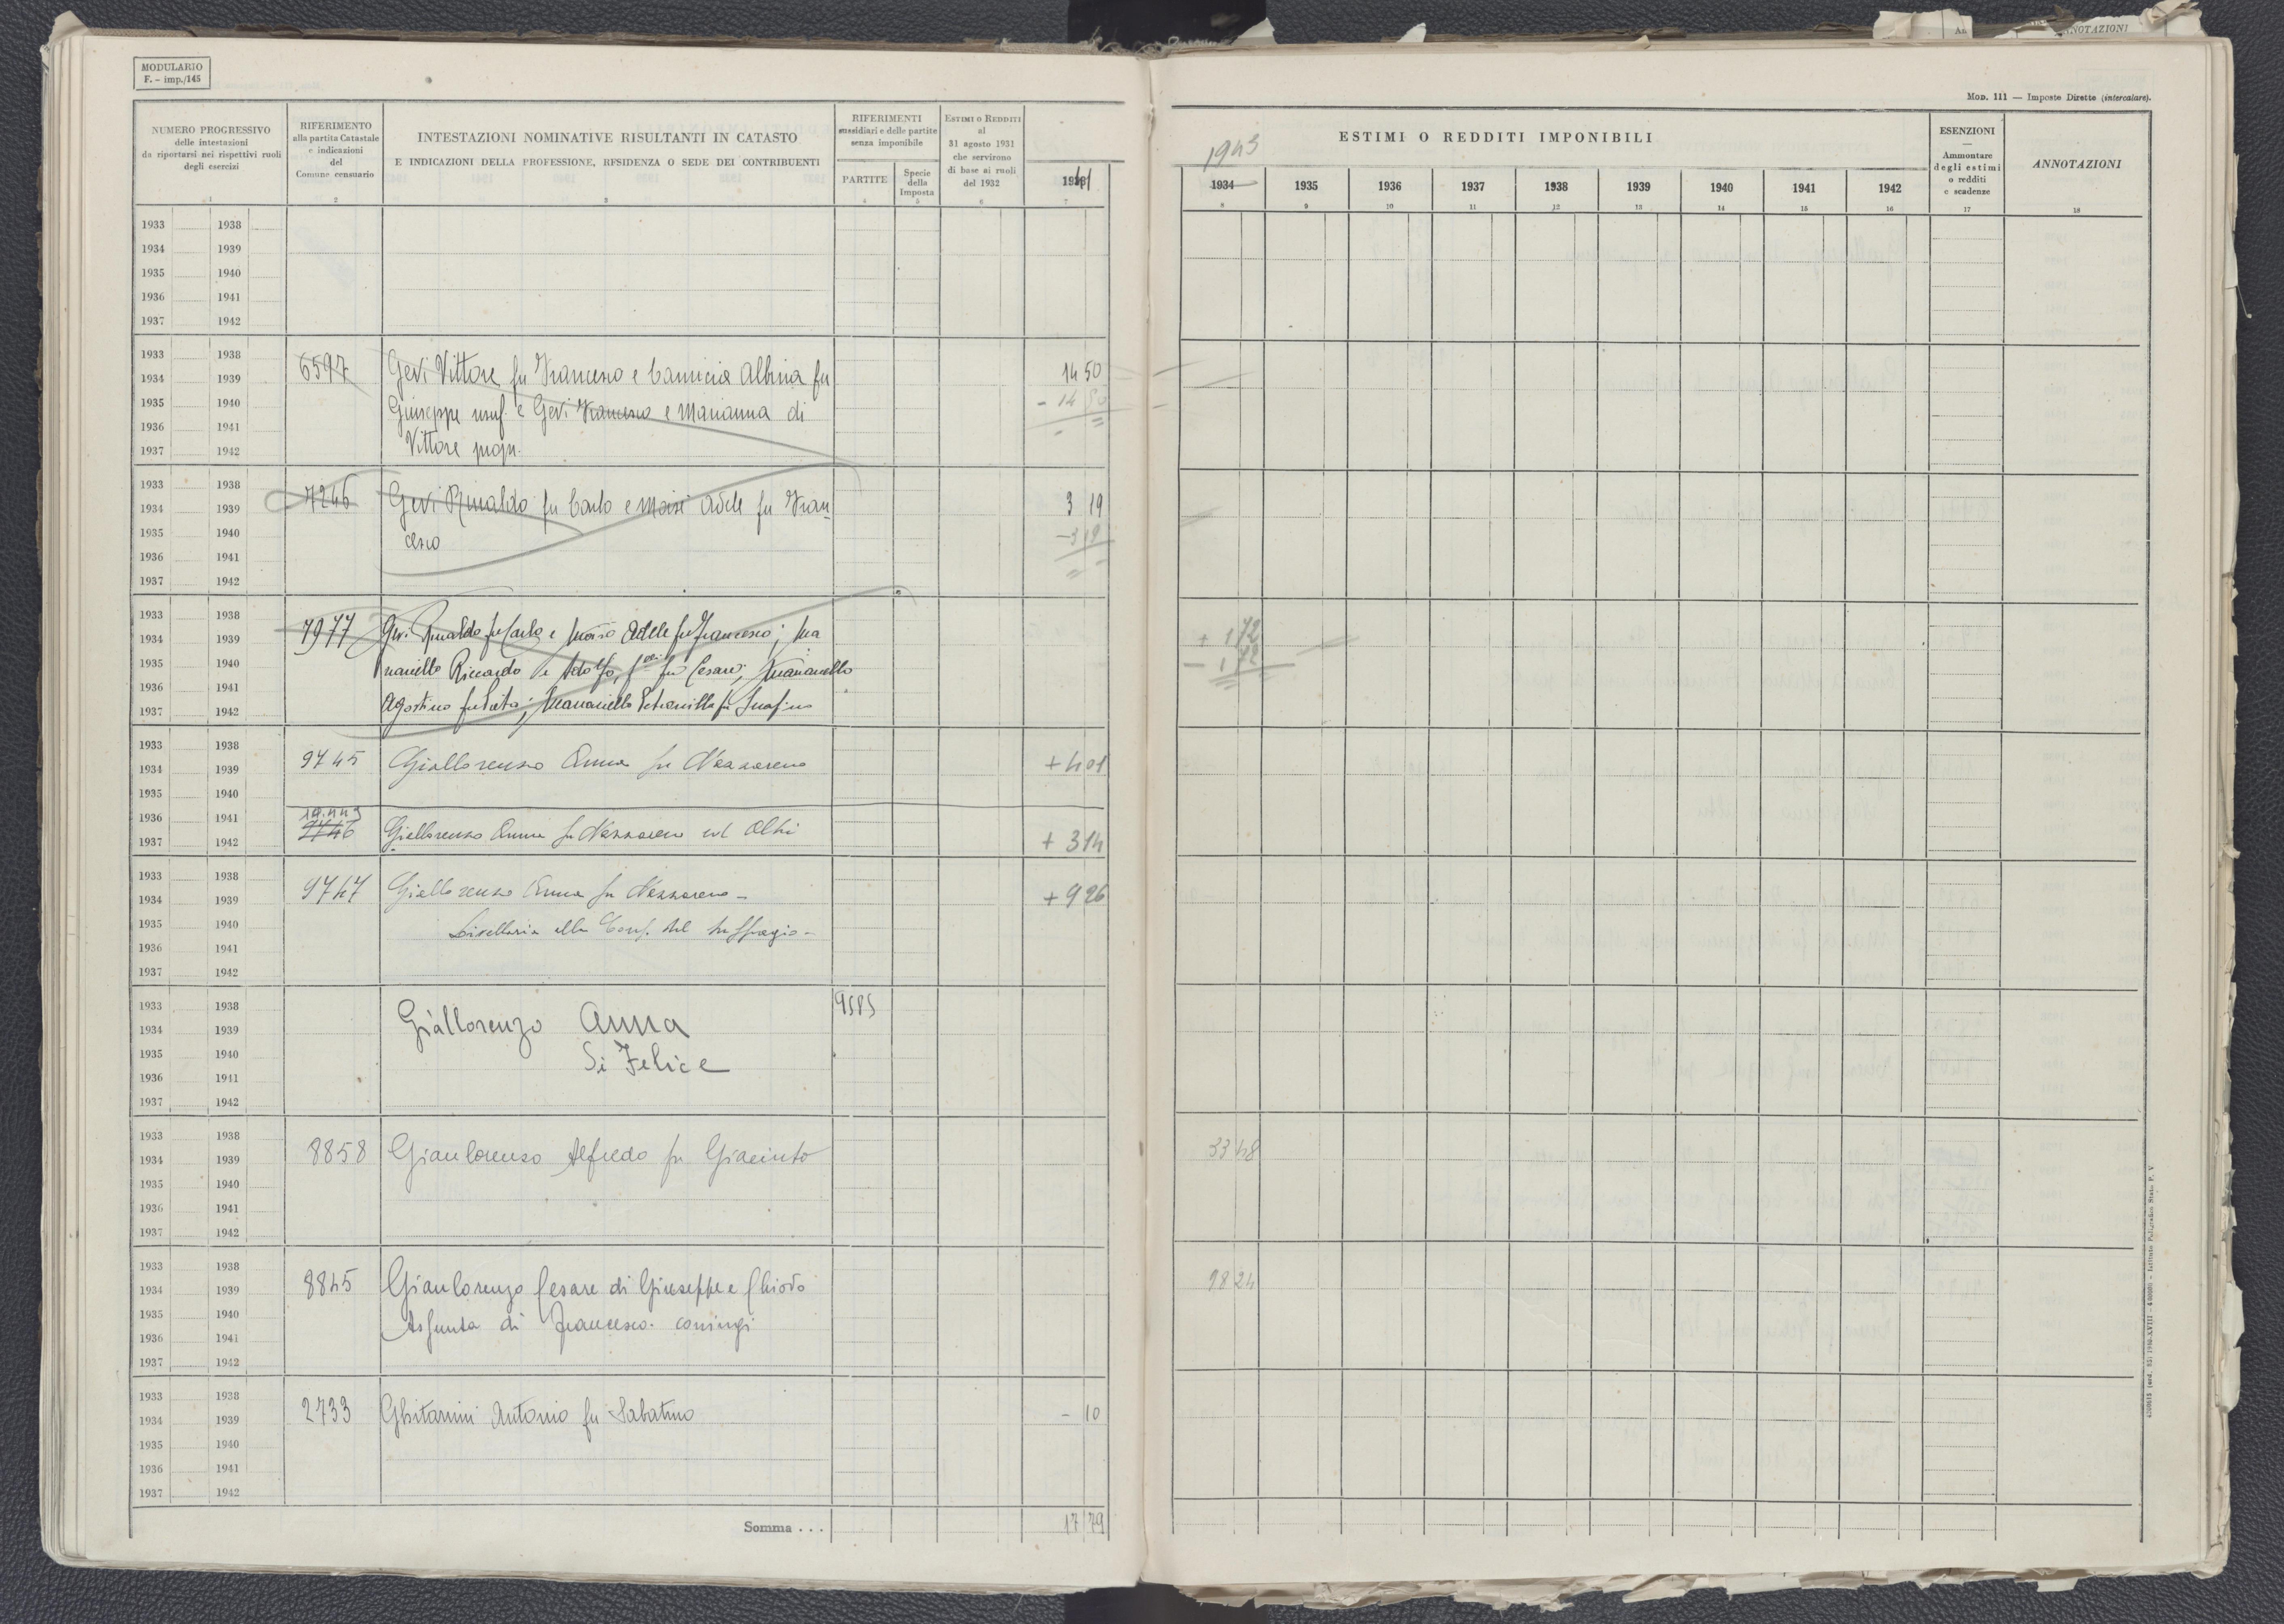 MODULARIO
F. - imp./145
NOTAZIONI
Mod. 111 — Imposte Dirette (intercalare).
NUMERO PROGRESSIVO
delle intestazioni
da riportarsi nei rispettivi ruoli
degli esercizi
1
RIFERIMENTO
alla partita Catastale
e indicazioni
del
Comune censuario
2
INTESTAZIONI NOMINATIVE RISULTANTI IN CATASTO
E INDICAZIONI DELLA PROFESSIONE, RESIDENZA O SEDE DEI CONTRIBUENTI
3
RIFERIMENTI
sussidiari e delle partite
senza imponibile
PARTITE
4
Specie
della
Imposta
5
Estimi o Redditi
al
31 agosto 1931
che servirono
di base ai ruoli
del 1932
6
7
ESTIMI O REDDITI IMPONIBILI
1943
1934 1935 1936 1937 1938 1939 1940 1941 1942
8 9 10 11 12 13 14 15 16
ESENZIONI
—
Ammontare
degli estimi
o redditi
e scadenze
17
ANNOTAZIONI
18
1933 1938
1934 1939
1935 1940
1936 1941
1937 1942
1933 1938
1934 1939 6597 Gevi Vittore fu Francesco e Cannicia Albina fu 14 50
1935 1940 Giuseppe usuf. e Gevi Francesco e Marianna di - 14 50
1936 1941 Vittore propr. -
1937 1942
1933 1938
1934 1939 7246 Gevi Rinaldo fu Carlo e Moisè Adele fu Fran- 3 19
1935 1940 cesco - 3 19
1936 1941
1937 1942
1933 1938
1934 1939 7977 Gevi Rinaldo fu Carlo e Adele fu Francesco; Ma + 1 72
1935 1940 naniello Riccardo e Adolfo, f.lli fu Cesare; Mananiello - 1 72
1936 1941
1937 1942 Agostino fu; Mananiello Petronilla fu Serafino
1933 1938
1934 1939 9745 Giallorenzo Anna fu Nazzareno + 4 01
1935 1940
1936 1941 9746
1937 1942 Giallorenzo Anna fu Nazzareno ed Altri + 3 14
1933 1938
1934 1939 9747 Giallorenzo Anna fu Nazzareno - + 9 26
1935 1940 Livellaria alla Conf. del Suffragio -
1936 1941
1937 1942
1933 1938 9585
1934 1939 Giallorenzo Anna
1935 1940 di Felice
1936 1941
1937 1942
1933 1938
1934 1939 8858 Gianlorenzo Alfredo fu Giacinto 33 48
1935 1940
1936 1941
1937 1942
1933 1938
1934 1939 8845 Gianlorenzo Cesare di Giuseppe e Chiodo 98 24
1935 1940
1936 1941 Assunta di Francesco. coniugi
1937 1942
1933 1938
1934 1939 2733 Ghitarrini Antonio fu Sabatino - 10
1935 1940
1936 1941
1937 1942
Somma . . . 17 79